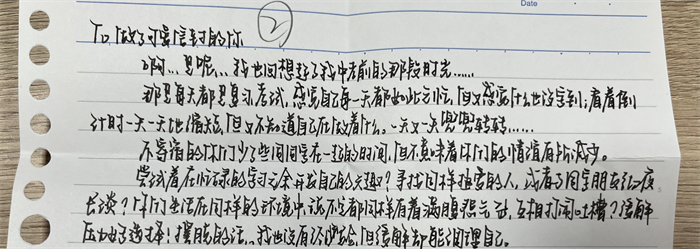 Date
②
To 做了可要信封的你
啊…是呢…我也回想起了我中考前的那段时光……
那是每天都是复习考试,感觉自己每一天都如此忙忙,但又感觉什么也没学到;看着倒
计时一天一天地缩短,但又不知道自己在做着什么。一天又一天兜兜转转……
不寄宿的你们少了些同学在一起的时间,但不意味着你们的情谊有所减少。
尝试着在忙碌的学习之余开发自己的兴趣?寻找同样 的人,或者与同学朋友们夜
长谈?你们生活在同样的环境中,说不定都同样有着满腹想言语,互相打闹吐槽?缓解
压力好了选择!摆脱的话…我也没有 ,但缓解却能调理自己。